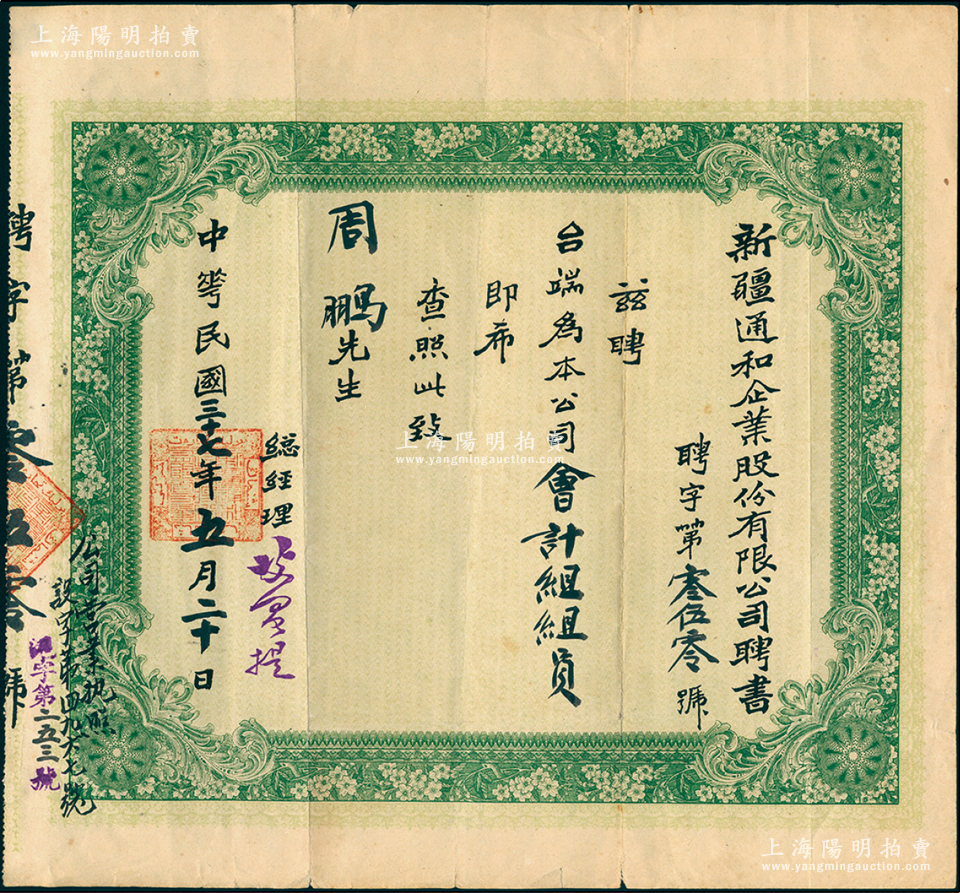 上海陽明拍賣
www.yangmingauction.com
新疆通和企業股份有限公司聘書
聘字第叁伍零號
兹聘
台端為本公司會計組組員
即希
查照此致
周鵬先生
總經理
中華民國三十七年五月二十日
公司營業執照
設字第四九六七號
字第二五三號
聘字第叁伍零號
上海陽明拍賣
www.yangmingauction.com
上海陽明拍賣
www.yangmingauction.com